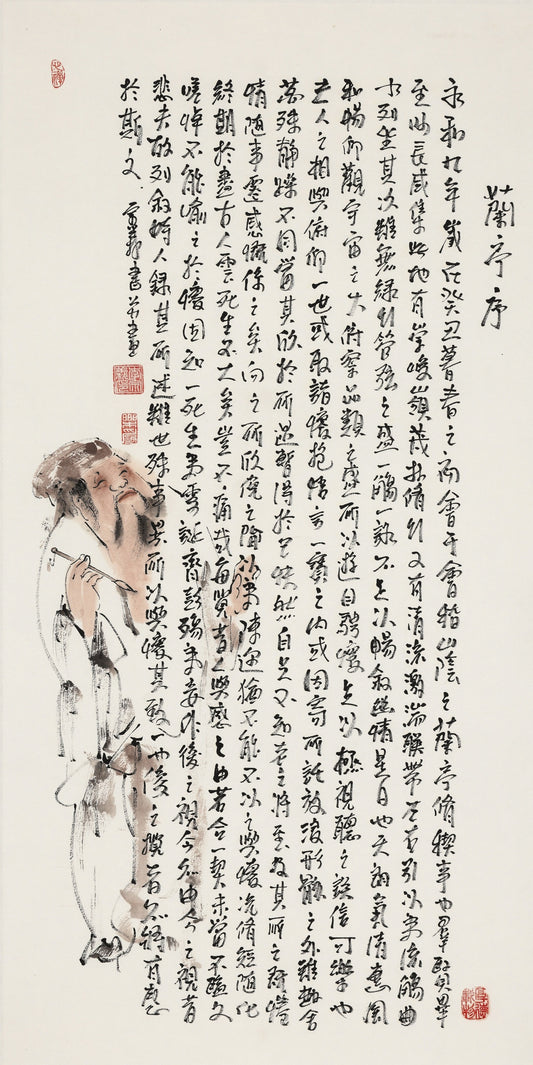 蘭亭序
永和九年歲在癸丑暮春之初會于會稽山陰之蘭亭脩稧事也羣賢畢
至少長咸集此地有崇峻嶺茂林脩竹又有清流激湍暎帶左右引以為流觴曲
水列坐其次雖無絲竹管弦之盛一觴一詠亦足以暢敘幽情是日也天朗氣清惠風
和暢仰觀宇宙之大俯察品類之盛所以遊目騁懷足以極視聽之娛信可樂也
夫人之相與俯仰一世或取諸懷抱悟言一室之內或因寄所託放浪形骸之外雖趣舍
萬殊靜躁不同當其欣於所遇暫得於己快然自足不知老之將至及其所之既惓
情隨事遷感慨係之矣向之所欣俛之間以為陳迹猶不能不以之興懷況脩短隨化
終期於盡古人雲死生亦大矣豈不痛哉每覽昔人興感之由若合一契未嘗不臨文
嗟悼不能喻之於懷固知一死生為虛誕齊彭殤為妄作後之視今亦由今之視昔
悲夫故列敘時人錄其所述雖世殊事異所以興懷其致一也後之攬者亦將有感
於斯文 書並畫